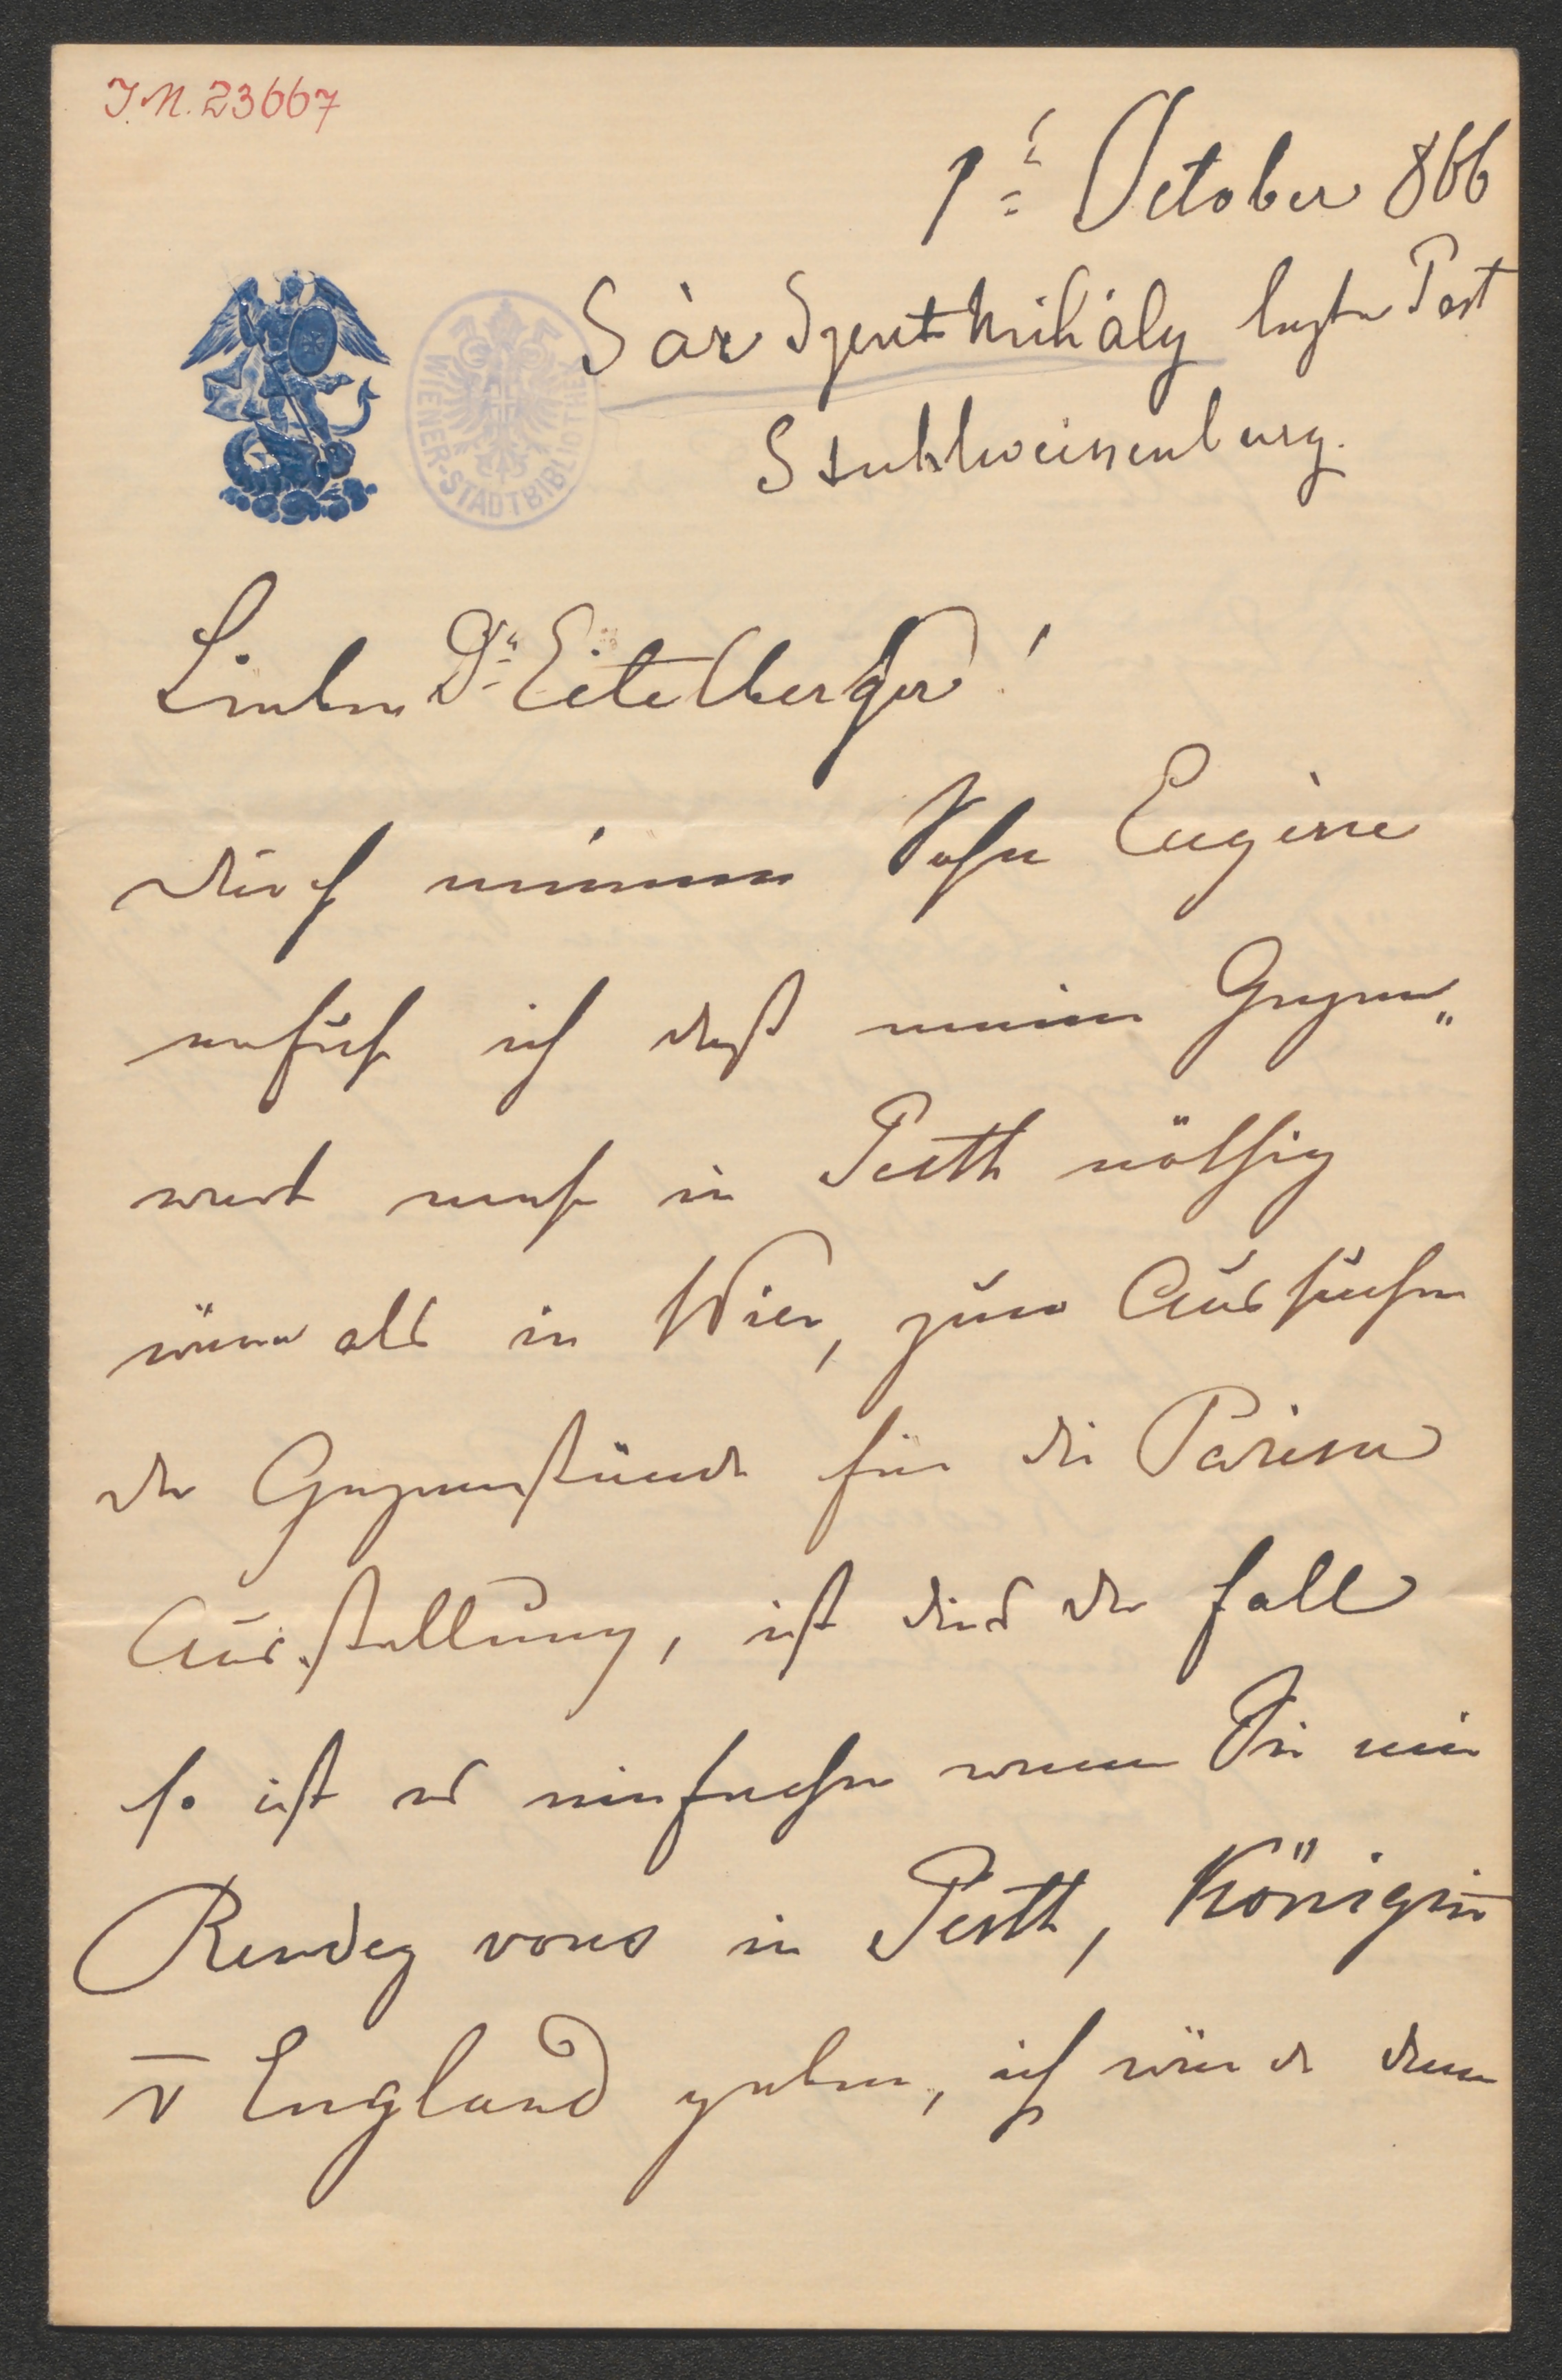 I.N. 23667
1ᵗ October 866
Sàr Szent Mihàly letzte Post
Stuhlweissenburg.
WIENER-STADTBIBLIOTHEK
Lieber Dr Eitelberger!
Durch meinen Sohn Eugène
erfuhr ich daß meine Gegen„
wart mehr in Pesth nöthig
wäre als in Wien, zum Aussuchen
der Gegenstände für die Pariser
Ausstellung, ist dies der Fall
so ist es einfacher wenn Sie mir
Rendez vous in Pesth, Königin
v England geben, ich würde dann